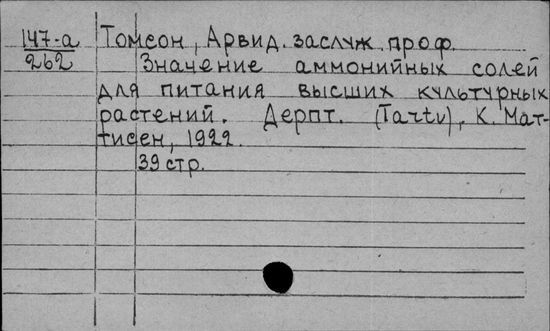 147-а Томсон, Арвид. заслуж. проф.
262
Значение аммонийных солей
для питания высших культурных
растений. Дерпт. (Tartu), К. Мат-
тисен, 1922.
39 стр.